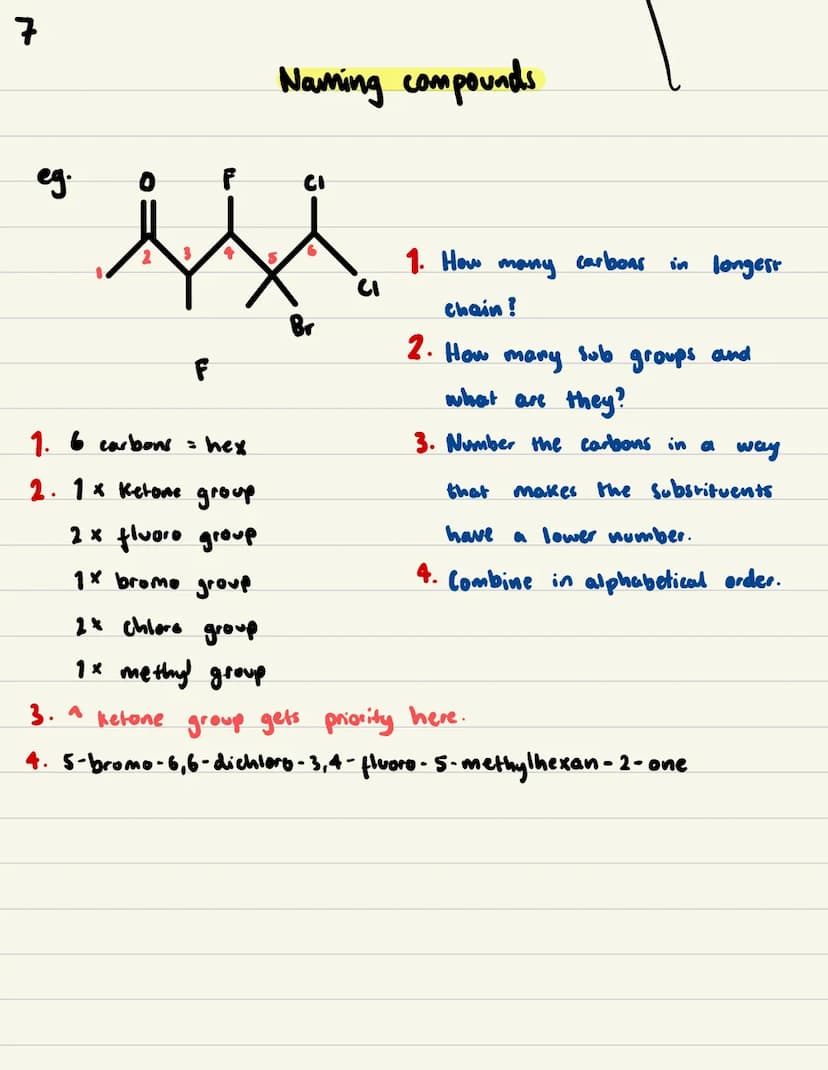 7
Naming compounds
eg.
O F Cl
1 2 3 4 5 6
Cl
Br
F
1. How many carbons in longest
chain?
2. How many sub groups and
what are they?
3. Number the carbons in a way
that makes the substituents
have a lower number.
4. Combine in alphabetical order.
1. 6 carbons = hex
2. 1x Ketone group
2x fluoro group
1x bromo group
2x chloro group
1x methyl group
3. ^ ketone group gets priority here.
4. 5-bromo-6,6-dichloro-3,4-fluoro-5-methylhexan-2-one